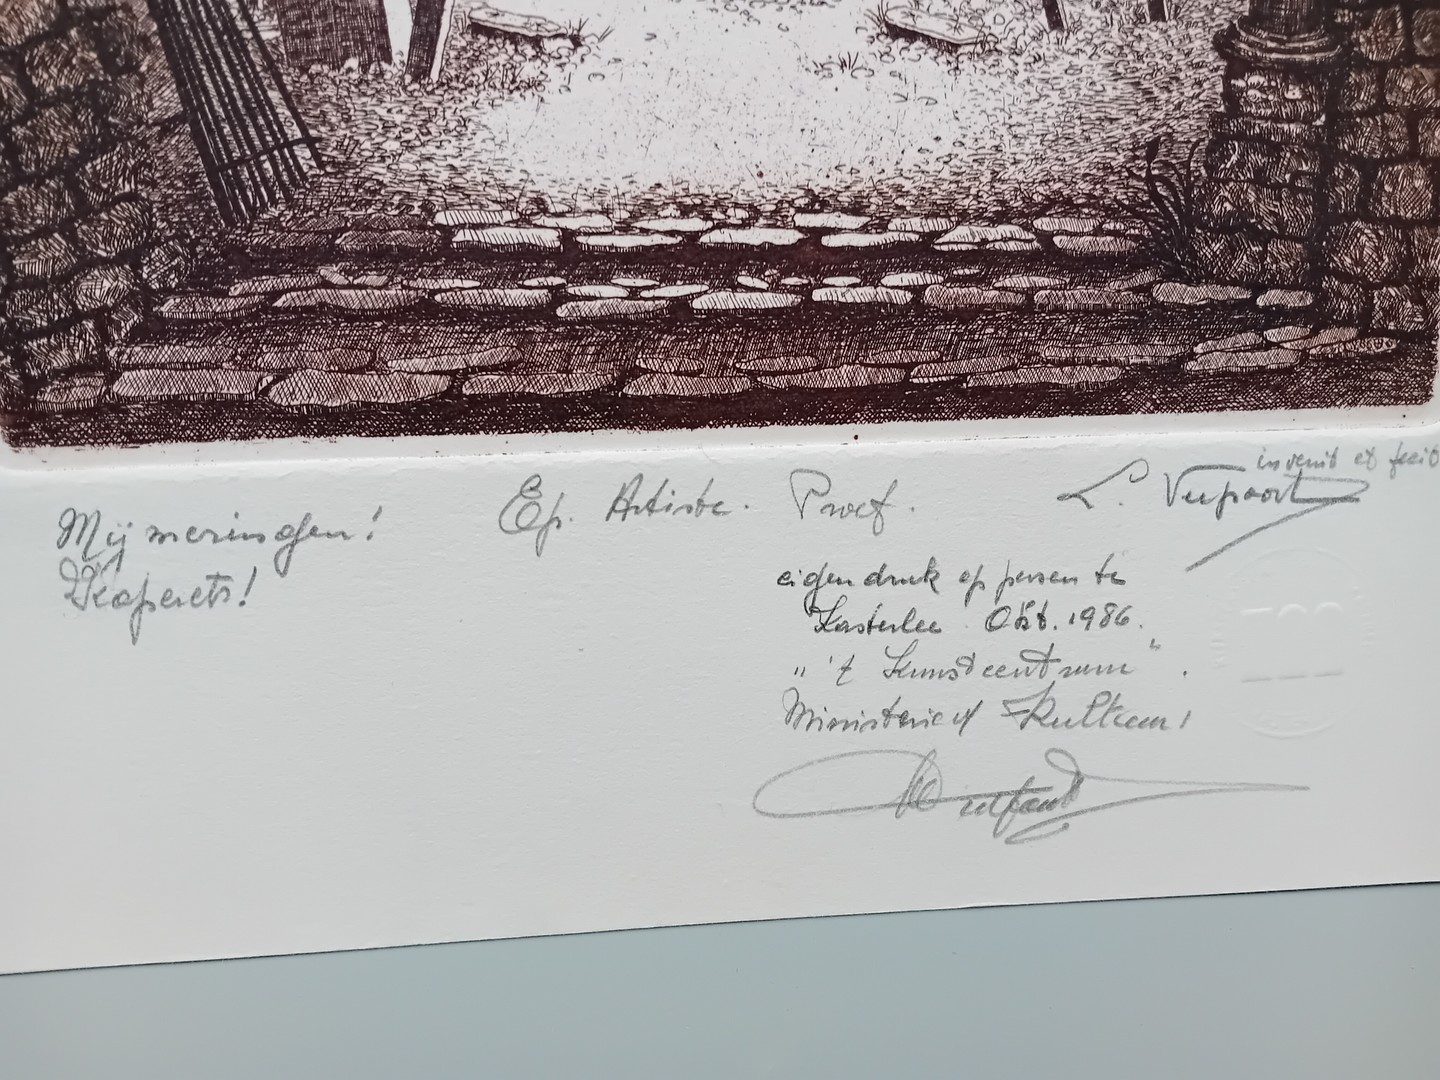 Mijmeringen!
Ep. Artiste. Proef.
L. Verpoort
invenit et fecit
eigen druk op persen te
Kasterlee Okt. 1986.
„ 't Kunstcentrum ".
Ministerie v/